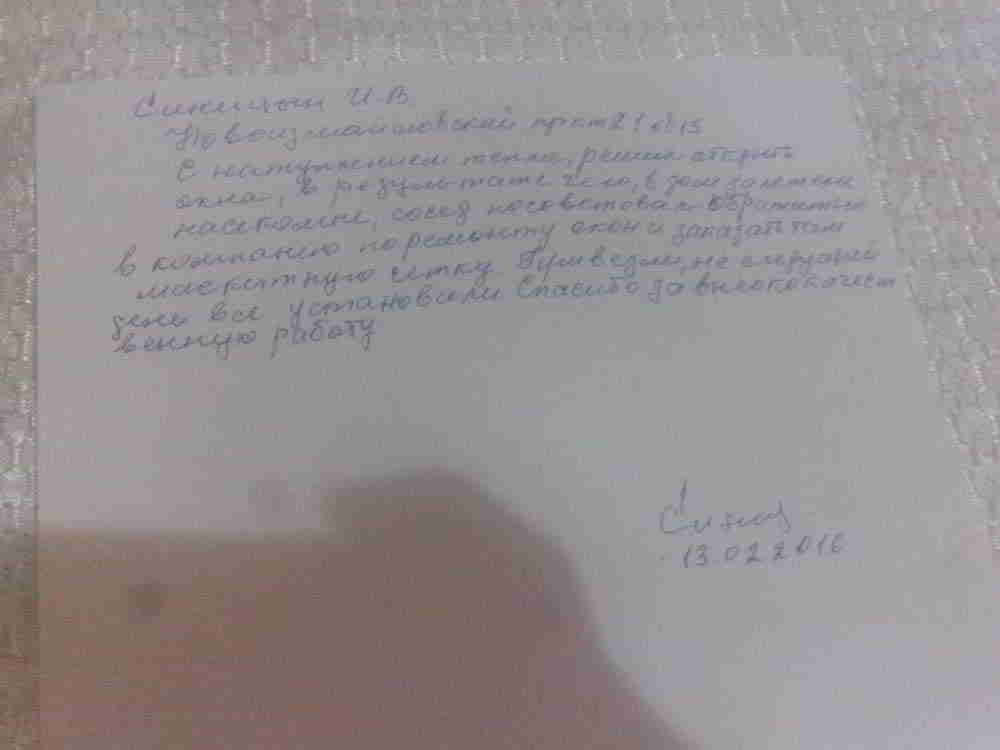 Синицын И.В.
Новоизмайловский пр-т 21
С наступлением тепла, решил открыть
окна, в результате чего, в дом залетели
насекомые, сосед посоветовал обратиться
в компанию по ремонту окон и заказать там
маскитную сетку. привезли, на следущий
день все установили Спасибо за высококачест
венную работу
13.02.2016